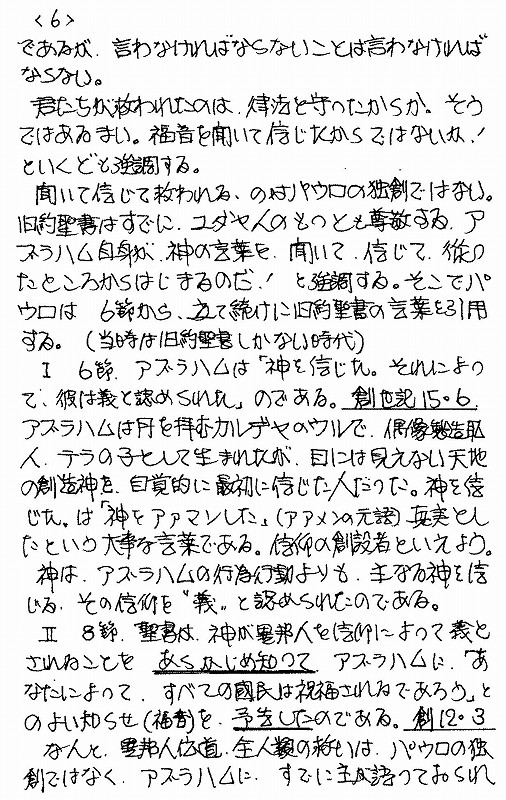 <6>
であるが、言わなければならないことは言わなければ
ならない。
君たちが救われたのは、律法を守ったからか。そう
ではあるまい。福音を聞いて信じたからではないか!
といくども強調する。
聞いて信じて救われる、のはパウロの独創ではない。
旧約聖書はすでに、ユダヤ人のもっとも尊敬する、ア
ブラハム自身が、神の言葉を、聞いて、信じて、従っ
たところからはじまるのだ! と強調する。そこでパ
ウロは 6節から、立て続けに旧約聖書の言葉を引用
する。(当時は旧約聖書しかない時代)
I 6節、アブラハムは「神を信じた。それによっ
て、彼は義と認められた」のである。創世記15・6
アブラハムは月を拝むカルデヤのウルで、偶像製造職
人、テラの子として生まれたが、目には見えない天地
の創造神を、自覚的に最初に信じた人だった。神を信
じた。は「神をアァマンした」(アァメンの元語)真実とし
たという大事な言葉である。信仰の創設者といえよう。
神は、アブラハムの行為行動よりも、主なる神を信
じる、その信仰を"義"と認められたのである。
II 8節、聖書は、神が異邦人を信仰によって義と
されることを あらかじめ知って アブラハムに、「あ
なたによって、すべての國民は祝福されるであろう」と
のよい知らせ(福音)を、予告したのである。創12・3
なんと、異邦人伝道、全人類の救いは、パウロの独
創ではなく、アブラハムに、すでに主が語っておられ